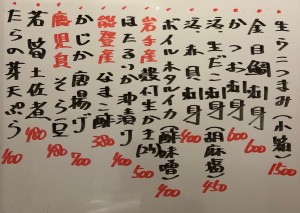 生うにつまみ(小箱) 1500
金目鯛刺身 600
かつお刺身 600
活、生だこ刺身(胡麻塩) 450
活、赤貝刺身
ボイルホタルイカ(酢味噌) 400
岩手産 殻付生かき(2ヶ) 500
ほたるいか沖漬り 400
能登産 なまこ酢 380
かじか唐揚げ 700
鹿児島 そら豆 480
若筍土佐煮 480
たらの芽天ぷら 400